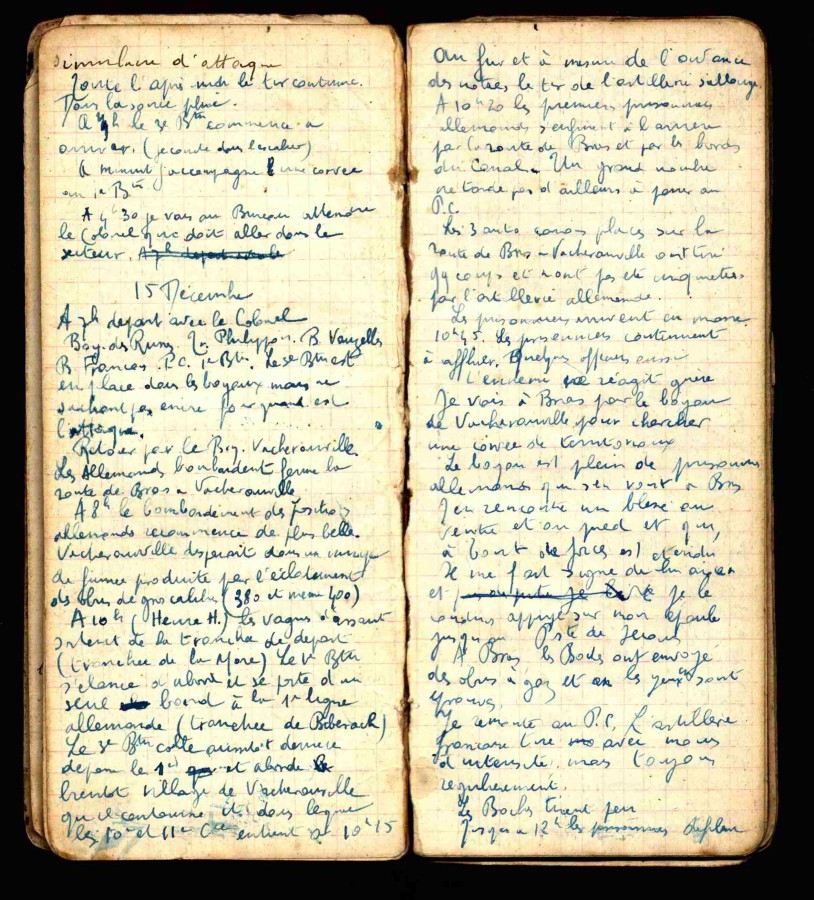 simulacre d'attaque
Toute l'après midi le tir continue.
Dans la soirée pluie.
A 7h le 3e Btn commence a
arriver. (seconde dans l'escalier)
A minuit j'accompagne une corvée
au 1e Btn
A 4h30 je vais au Bureau attendre
le Colonel qui doit aller dans le
secteur.
15 Décembre
A 7h départ avec le Colonel
Boy. des Rums. Philippon. B. Vauzelles
B. Francois. P.C. 1e Btn. Le 3e Btn est
en place dans les boyaux mais ne
sachant pas encore pour quand est
l'attaque.
Retour par le Boy. Vacherauville.
Les Allemands bombardent ferme la
route de Bras a Vacherauville
A 8h le bombardement des positions
allemandes recommence de plus belle.
Vacherauville disparait dans un nuage
de fumée produite par l'éclatement
des obus de gros calibre (380 et meme 400)
A 10h (Heure H.) les vagues d'assaut
sortent de la tranchée de départ
(tranchée de la More) Le 1e Btn
s'élance d'abord et se porte d'un
seul bond à la 1e ligne
allemande (tranchée de Biberach)
Le 3e Btn collé aussitot derriere
depasse le 1er et aborde
bientot village de Vacherauville
qu'il contourne et dans lequel
les 10e et 11e Cie entrent a 10h15
Au fur et à mesure de l'avance
des notres le tir de l'artillerie s'allonge.
A 10h20 les premiers prisonniers
allemands s'enfuient à l'arriere
par la route de Bras et par les bords
du Canal. Un grand nombre
ne tarde pas d'ailleurs à passer au
P.C.
Les 3 auto canons placés sur la
route de Bras a Vacherauville ont tiré
99 coups et n'ont pas été inquietés
par l'artillerie allemande.
Les prisonniers arrivent en masse
10h45. Les prisonniers continuent
à affluer. Quelques officiers aussi
L'ennemi ne réagit guère
Je vais à Bras par le boyau
de Vacherauville pour chercher
une corvée de territoriaux
Le boyau est plein de prisonniers
allemands qui s'en vont à Bras
J'en rencontre un blessé au
ventre et au pied et qui,
à bout de forces est etendu
Il me fait signe de lui aider
et je le
conduis appuyé sur mon épaule
jusqu'au Poste de Secours
A Bras, les Boches ont envoyé
des obus à gaz et les yeux en sont
eprouvés.
Je remonte au P.C. L'artillerie
française tire avec moins
d'intensité, mais toujours
regulierement.
Les Boches tirent peu
Jusqu'a 12h les prisonniers defilent